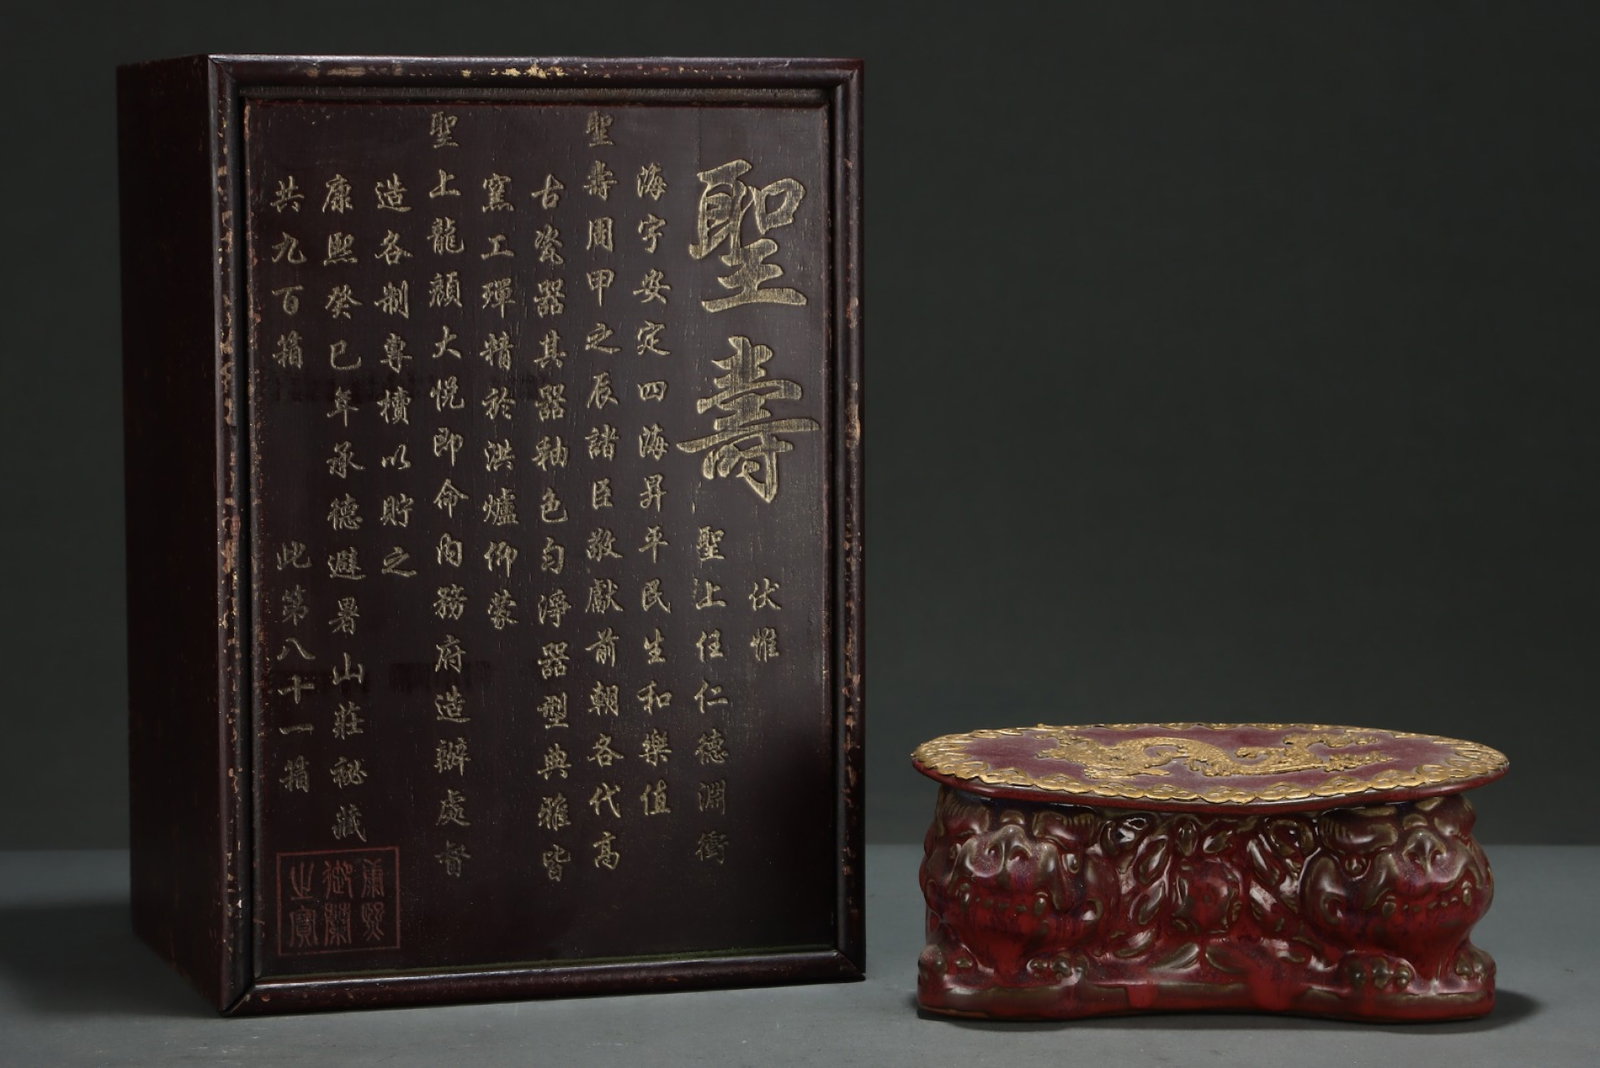 聖壽
伏惟
聖上任仁德淵衝
海宇安定四海昇平民生和樂值
聖壽周甲之辰諸臣敬獻前朝各代高
古瓷器其器釉色勻淨器型典雅皆
窯工殫精於洪爐仰蒙
聖上龍顏大悅即命內務府造辦處督
造各制專櫝以貯之
康熙癸巳年承德避暑山莊秘藏
共九百箱 此第八十一箱
康熙
御櫱
之寳